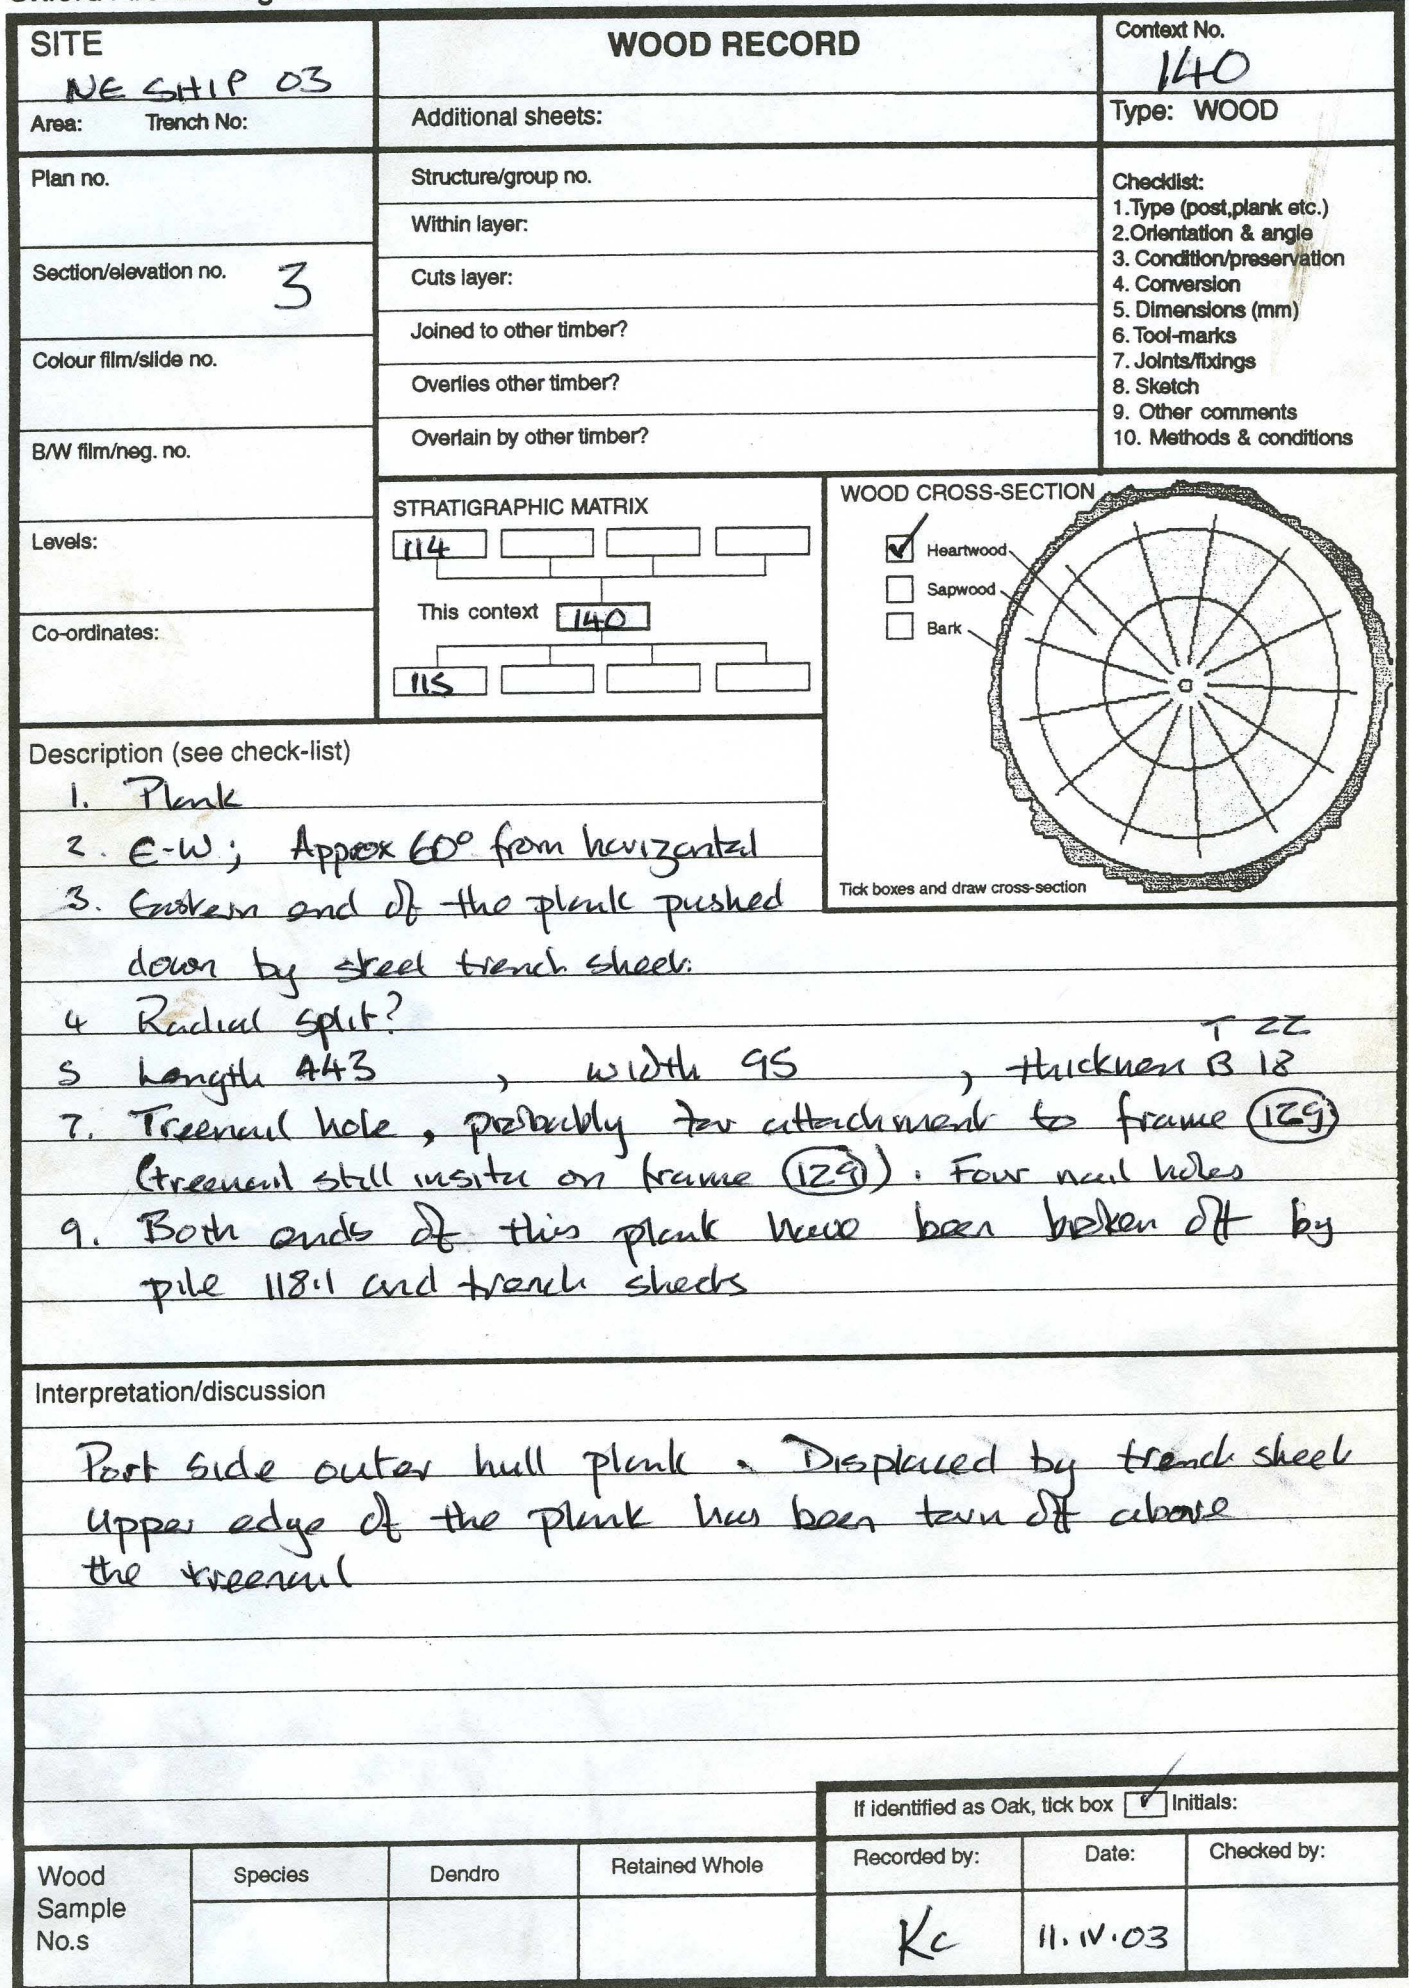 SITE
NE SHIP 03
Area: Trench No:
WOOD RECORD
Additional sheets:
Context No.
140
Type: WOOD
Plan no.
Section/elevation no. 3
Colour film/slide no.
B/W film/neg. no.
Levels:
Co-ordinates:
Structure/group no.
Within layer:
Cuts layer:
Joined to other timber?
Overlies other timber?
Overlain by other timber?
Checklist:
1.Type (post,plank etc.)
2.Orientation & angle
3. Condition/preservation
4. Conversion
5. Dimensions (mm)
6. Tool-marks
7. Joints/fixings
8. Sketch
9. Other comments
10. Methods & conditions
STRATIGRAPHIC MATRIX
114
This context 140
115
WOOD CROSS-SECTION
Heartwood
Sapwood
Bark
Tick boxes and draw cross-section
Description (see check-list)
1. Plank
2. E-W; Approx 60° from horizontal
3. Eastern end of the plank pushed
down by steel trench sheet.
4 Radial split?
T 22
5 Length 443 , width 95 , thickness B 18
7. Treenail hole, probably for attachment to frame (129)
(treenail still insitu on frame (129)). Four nail holes
9. Both ends of this plank have been broken off by
pile 118.1 and trench sheets
Interpretation/discussion
Port side outer hull plank. Displaced by trench sheet
Upper edge of the plank has been torn off above
the treenail
If identified as Oak, tick box Initials:
Wood
Sample
No.s
Species
Dendro
Retained Whole
Recorded by:
KC
Date:
11.IV.03
Checked by: